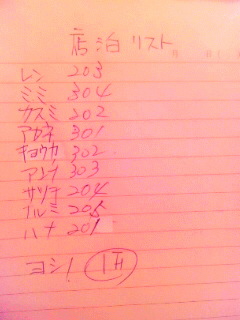 店泊リスト
レン 203
ミミ 304
カスミ 202
アカネ 301
キョウカ 302
アユナ 303
サツキ 204
ナルミ 205
ハナ 201
ヨシノ 1F